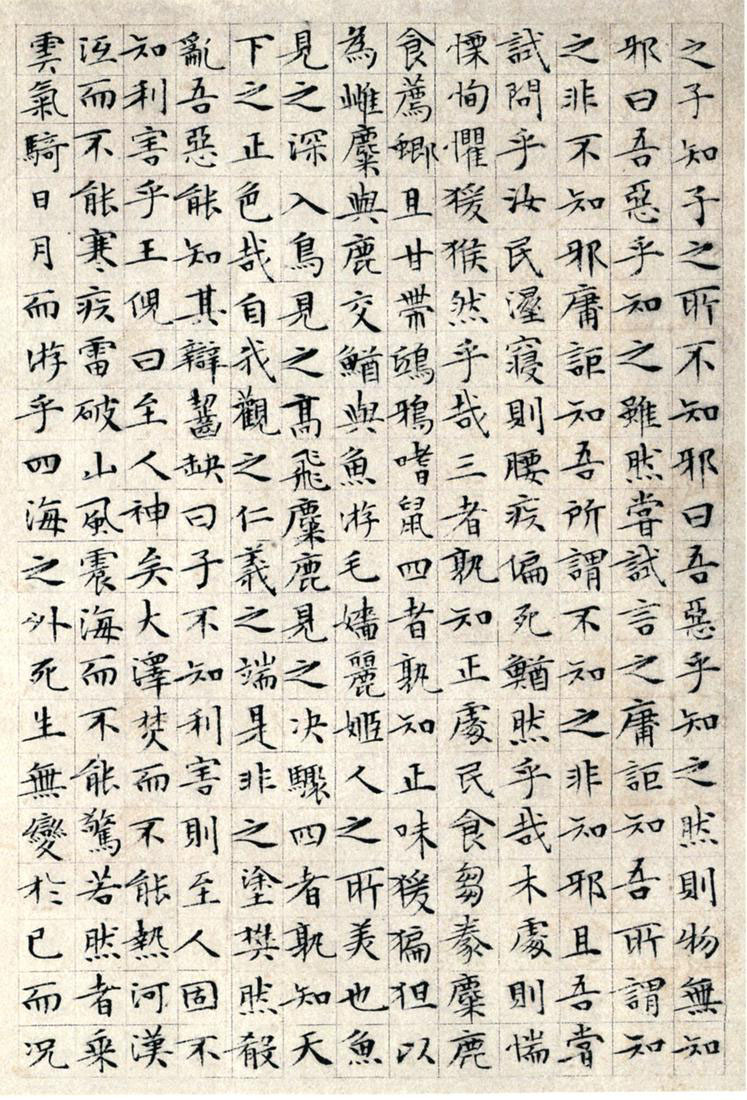 之子知子之所不知邪曰吾惡乎知之然則物無知
邪曰吾惡乎知之雖然嘗試言之庸詎知吾所謂知
之非不知邪庸詎知吾所謂不知之非知邪且吾嘗
試問乎汝民溼寢則腰疾偏死鰌然乎哉木處則惴
慄恂懼猨猴然乎哉三者孰知正處民食芻豢麋鹿
食薦螂且甘帶鴟鴉嗜鼠四者孰知正味猨猵狙以
為雌麋與鹿交鰌與魚游毛嬙麗姬人之所美也魚
見之深入鳥見之高飛麋鹿見之決驟四者孰知天
下之正色哉自我觀之仁義之端是非之塗樊然殽
亂吾惡能知其辯齧缺曰子不知利害則至人固不
知利害乎王倪曰至人神矣大澤焚而不能熱河漢
沍而不能寒疾雷破山風震海而不能驚若然者乘
雲氣騎日月而游乎四海之外死生無變於己而況